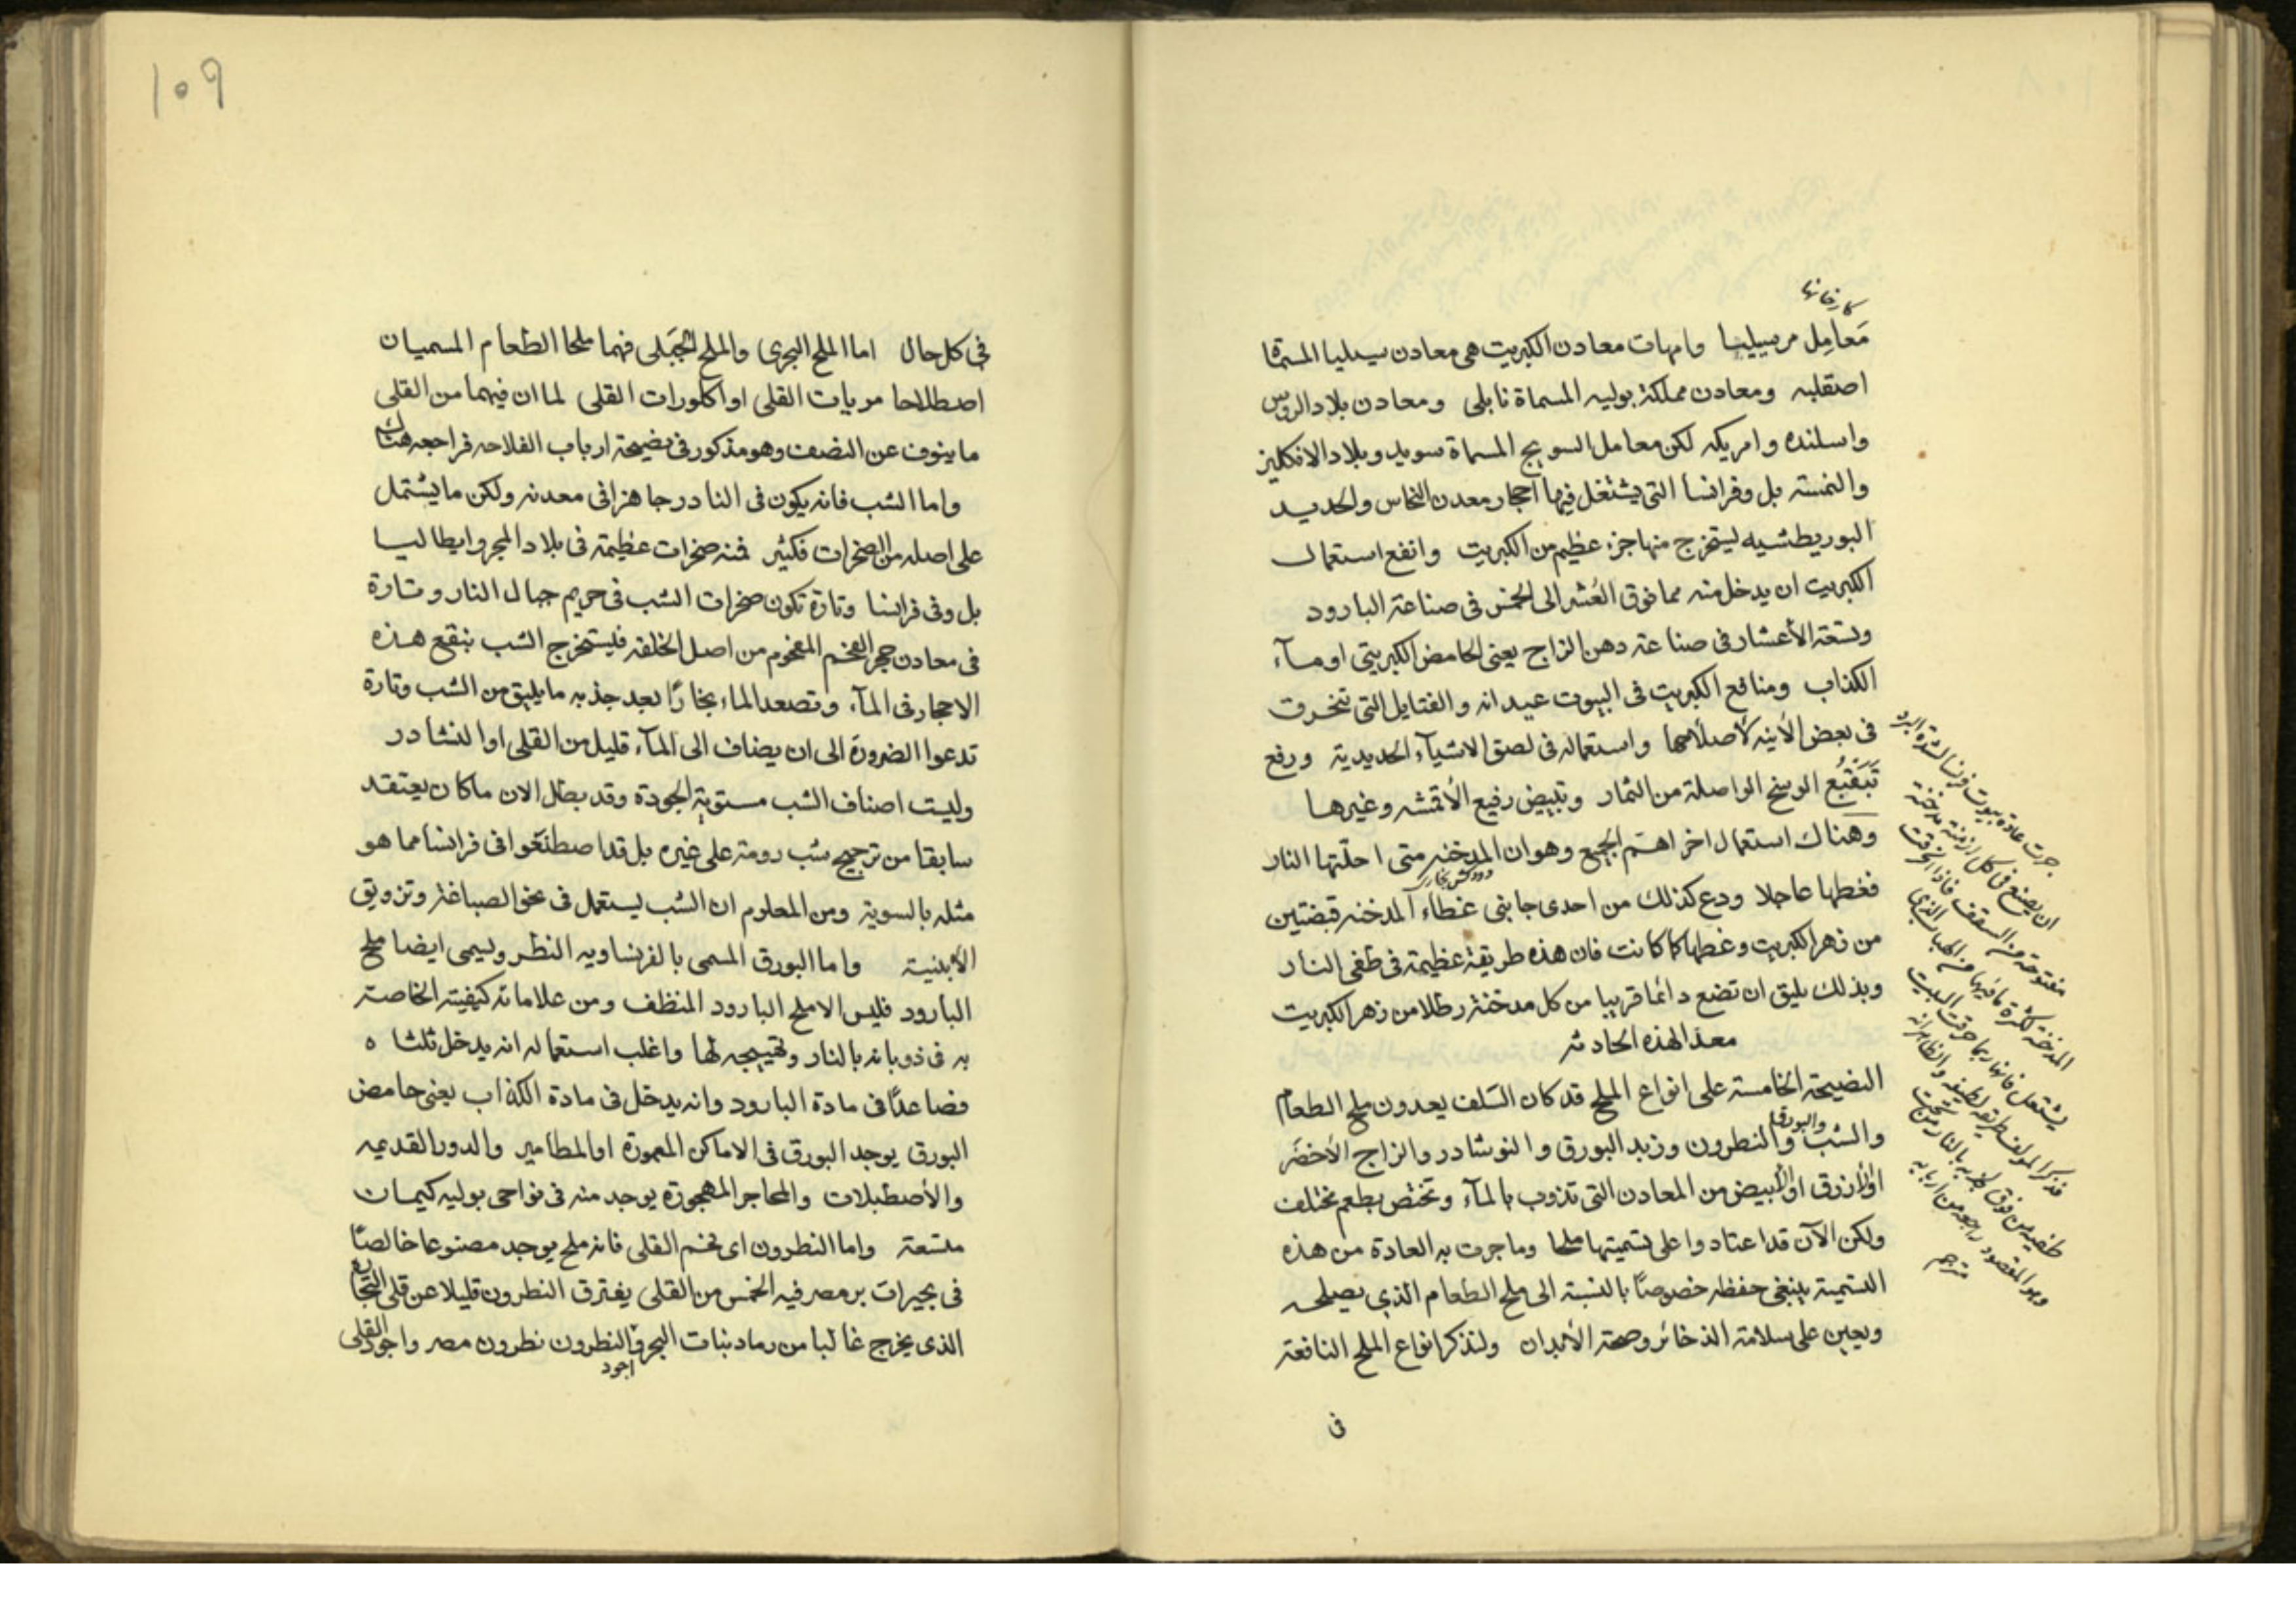 كارخانها
مَعامِل مرسيليا وامهات معادن الكبريت هى معادن سيليا المسماة
اصقليه ومعادن مملكة بوليه المسماة نابلى ومعادن بلاد الروس
واسلنده وامريكه لكن معامل السويج المسماة سويد وبلاد الانكليز
والنمسته بل وفرانسا التى يشتغل فيها احجار معدن النحاس والحديد
البوريطشيه ليستخرج منها جزء عظيم من الكبريت وانفع استعمال
الكبريت ان يدخل منه مما فوق العُشر الى الخمس فى صناعة البارود
وتسعة الأعشار فى صناعة دهن الزاج يعنى الحامض الكبريتى او ماء
الكذاب ومنافع الكبريت فى البيوت عيدانه والفتايل التى تحرق
فى بعض الأنيه لأصلاحها واستعماله فى لصق الاشياء الحديدية ورفع
تَبَقُّع الوسخ الواصلة من الثمار وتبييض رفيع الأقمشه وغيرها
وهناك استعمال اخر اهم الجميع وهو ان المدخنه متى احلتها النار
دودكش بخارى
فغطها عاجلا ودع كذلك من احدى جانبى غطاء المدخنه قبضتين
من زهر الكبريت وغطها كما كانت فان هذه طريقة عظيمة فى طفى النار
وبذلك يليق ان تضع دائما قريبا من كل مدخنة رطلا من زهر الكبريت
معدا لهذه الحادثه
النصيحة الخامسة على انواع الملح قد كان السَلف يعدون ملح الطعام
والبورق
والشب والنطرون وزبد البورق والنوشادر والزاج الأخضر
او الأزرق او الأبيض من المعادن التى تذوب بالماء وتختص بطعم مختلف
ولكن الآن قد اعتادوا على تسميتها ملحا وما جرت به العادة من هذه
التسمية ينبغى حفظه خصوصًا بالنسبة الى ملح الطعام الذى يصلحه
ويعين على سلامة الذخائر وصحة الأبدان ولنذكر انواع الملح النافعة
فى
جرت عادة بيوت فرنسا لشدة البرد
ان يصنع فى كل اوضة مدخنة
مفتوحة من السقف فاذا احرقت
المدخنة لكثرة ما فيها من الهباب الذى
يشتعل فانها ربما حرقت البيت
فذكر المؤلف طريقه لطيفه والظاهر انه
طفيه من فوق كبريه بالنار من تحت
وهو المقصود راجعه من اربابه
مترجم
١٠٩
فى كل حال اما الملح البحرى والملح الجبَلى فهما ملحا الطعام المسميان
اصطلاحا مريات القلى او اكلورات القلى لما ان فيهما من القلى
ما ينوف عن النصف وهو مذكور فى نصيحة ارباب الفلاحه فراجعه هناك
واما الشب فانه يكون فى النادر جاهزا فى معدنه ولكن ما يشتمل
على اصله من الصخرات فكثير فمنه صخرات عظيمة فى بلاد المجر وايطاليا
بل وفى فرانسا وتارة تكون صخرات الشب فى حريم جبال النار وتارة
فى معادن حجر الفحم المفحوم من اصل الخلقه فيستخرج الشب بنقع هذه
الاحجار فى الماء وتصعد الماء بخارًا بعد جذبه ما يليق من الشب وتارة
تدعوا الضرورة الى ان يضاف الى الماء قليل من القلى او النشادر
وليست اصناف الشب مستوية الجودة وقد بطل الان ما كان يعتقد
سابقا من ترجيح شب رومة على غيره بل قد اصطنعوا فى فرانسا مما هو
مثله بالسوية ومن المعلوم ان الشب يستعمل فى نحو الصباغة وتزويق
الأبنية واما البورق المسمى بالفرنساويه النطر ويسمى ايضا ملح
البارود فليس الا ملح البارود المنظف ومن علاماته كيفيته الخاصة
به فى ذوبانه بالنار وتهييجه لها واغلب استعماله انه يدخل ثلثاه
فصاعدًا فى مادة البارود وانه يدخل فى مادة الكذاب يعنى حامض
البورق يوجد البورق فى الاماكن المغمورة او المطامير والدور القديمه
والأصطبلات والمحاجر المهجورة يوجد منه فى نواحى بوليه كيمات
متسعة واما النطرون اى فحم القلى فانه ملح يوجد مصنوعا خالصًا
فى بحيرات بر مصر فيه الخمس من القلى يفترق النطرون قليلا عن قلى التجارة
الذى يخرج غالبا من رماد نبات البحر واجود النطرون نطرون مصر واجود القلى